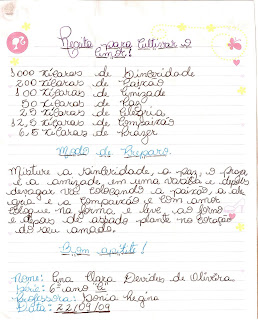 Receita para Cultivar o
Amor!
1000 xícaras de Sinceridade
200 xícaras de Paixão
100 xícaras de Amizade
50 xícaras de Paz
25 xícaras de Alegria
12,5 xícaras de Compaixão
6,5 xícaras de Prazer
Modo de Preparo
Misture a sinceridade, a paz, o prazer
e a amizade, em uma vasilha e depois
devagar vá colocando a paixão, a ale
gria e a compaixão e com amor
coloque na forma e leve ao forno
e depois de assado plante no coração
do seu amado.
Bom apetite!
Nome: Ana Clara Devides de Oliveira
Série: 6º ano "C"
Professora: Sonia Regina
Data: 22/09/09